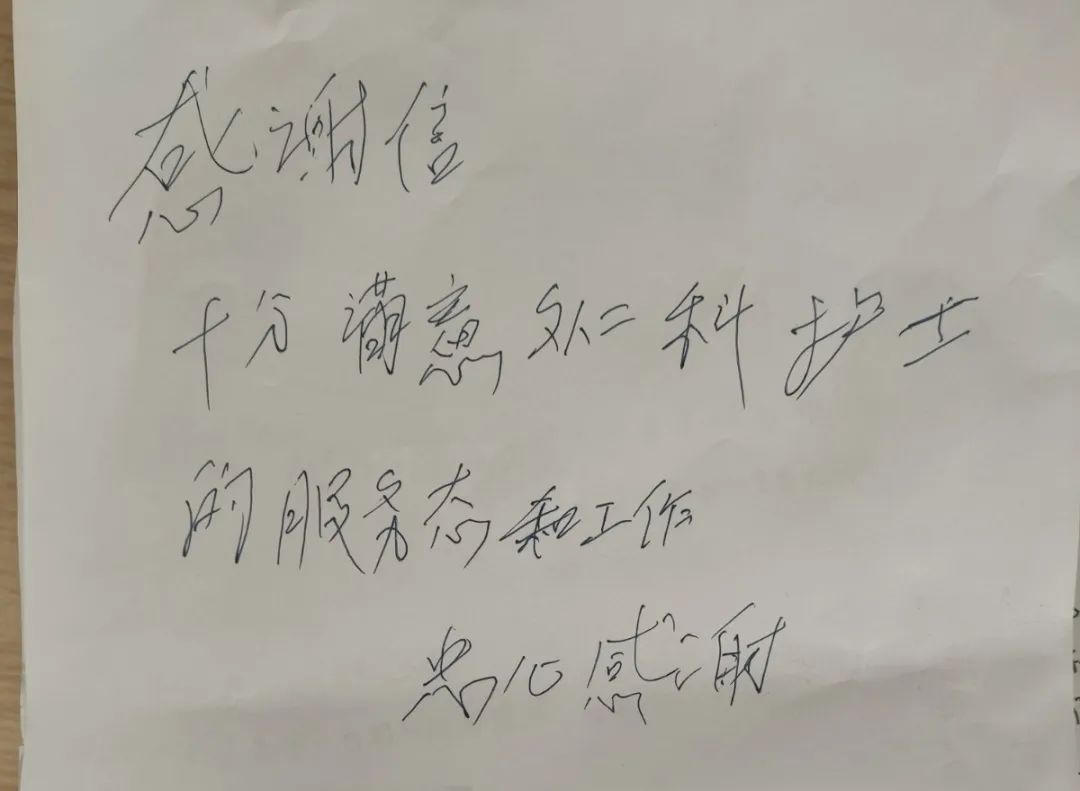 感谢信
十分满意外二科护士
的服务态和工作
忠心感谢